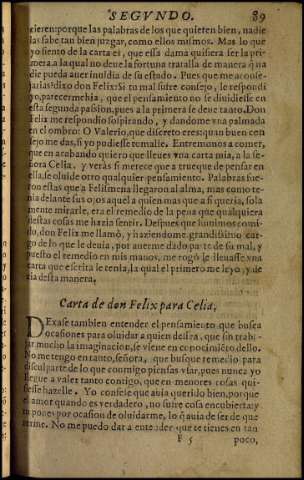 SEGVNDO. 89
rieren: porque las palabras de los que quieren bien, nadie
las sabe tan bien juzgar, como ellos mismos. Mas lo que
yo siento de la carta es, que essa dama quisiera ser la pri-
mera, a la qual no deue la fortuna tratalla de manera q̃ na
die pueda auer inuidia de su estado. Pues que me aconse-
jarias? dixo don Felix: Si tu mal sufre consejo, le respondi
yo, parecermehia, que el pensamiento no se diuidiesse en
esta segunda passion, pues a la primera se deue tanto. Don
Felix me respondio sospirando, y dandome vna palmada
en el ombro: O Valerio, que discreto eres: quan buen con
sejo me das, si yo pudiesse tomalle. Entremonos a comer,
que en acabando quiero que lleues vna carta mia, a la se-
ñora Celia, y veràs si merece que a trueque de pensar en
ella, se oluide otro qualquier pensamiento. Palabras fue-
ron estas que a Felismena llegaron al alma, mas como te-
nia delante sus ojos aquel a quien mas que a si queria, sola
mente mirarle, era el remedio de la pena que qualquiera
destas cosas me hazia sentir. Despues que huuimos comi-
do, don Felix me llamò, y haziendome grandissimo car-
go de lo que le deuia, por auerme dado parte de su mal, y
puesto el remedio en mis manos, me rogò le lleuasse vna
carta que escrita le tenia, la qual el primero me leyo, y de
zia desta manera.
Carta de don Felix para Celia,
DExase tambien entender el pensamiento que busca
ocasiones para oluidar a quien dessea, que sin traba-
jar mucho la imaginacion, se viene en conocimiẽto dello.
No me tengo en tanto, señora, que busque remedio para
disculparte de lo que conmigo piensas vsar, pues nunca yo
llegue a valer tanto contigo, que en menores cosas qui-
siesse hazelle. Yo confesse que auia querido bien, porque
el amor quando es verdadero, no sufre cosa encubierta: y
tu pones por ocasion de oluidarme, lo q̃ auia de ser de que-
rerme. No me puedo dar a entender que te tienes en tan
F 5 poco,